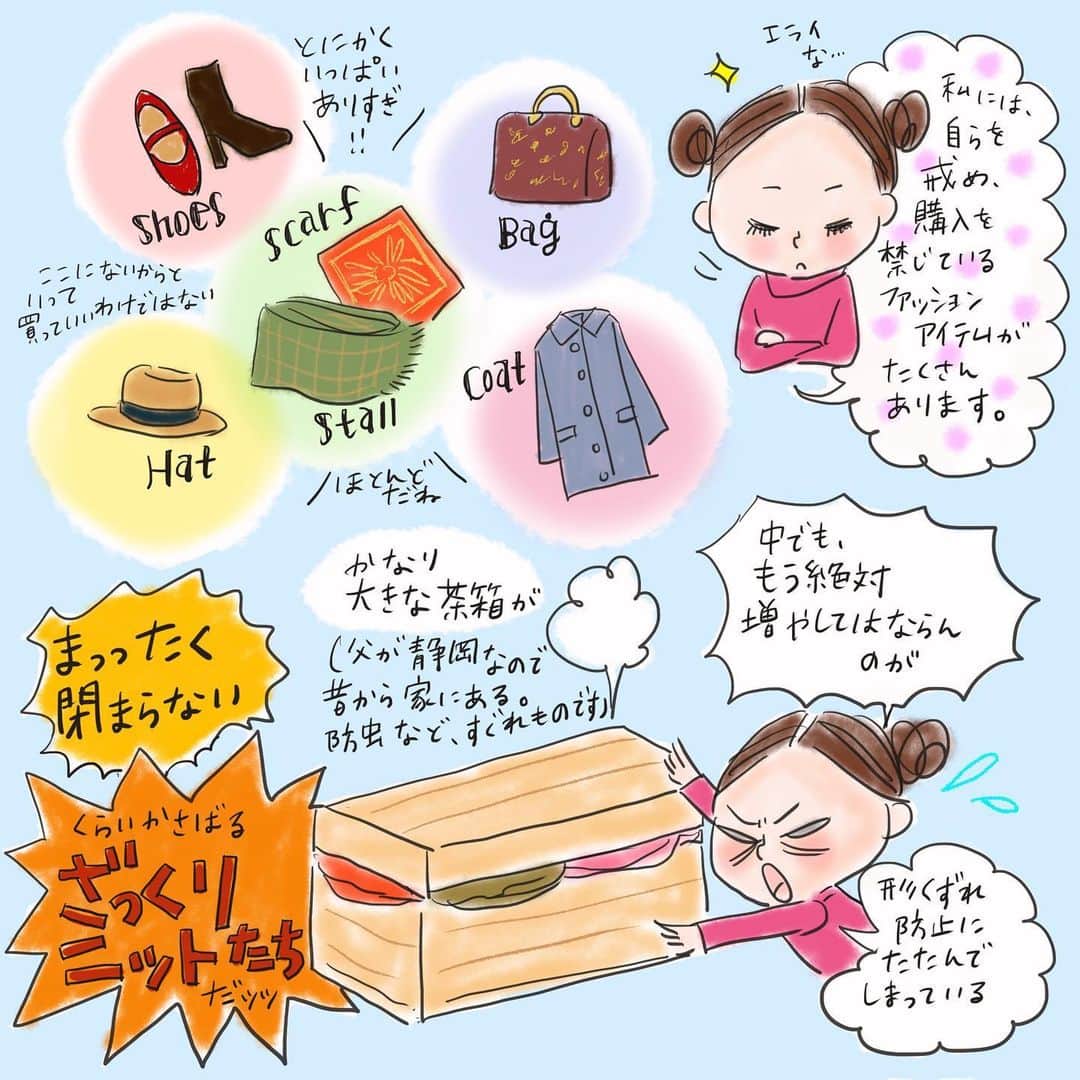 エライ
な…
私には、
自らを
戒め、
購入を
禁じている
ファッション
アイテムが
たくさん
あります。
とにかく
いっぱい
ありすぎ
!!
shoes
scarf
Bag
ここにないからと
いって
買っていいわけではない
Hat
stall
coat
ほとんど
だね
中でも、
もう絶対
増やしてはならん
のが
かなり
大きな茶箱が
(父が静岡なので
昔から家にある。
防虫など、すぐれものです)
まっったく
閉まらない
くらいかさばる
ざっくり
ニットたち
だッッ
形くずれ
防止に
たたんで
しまっている